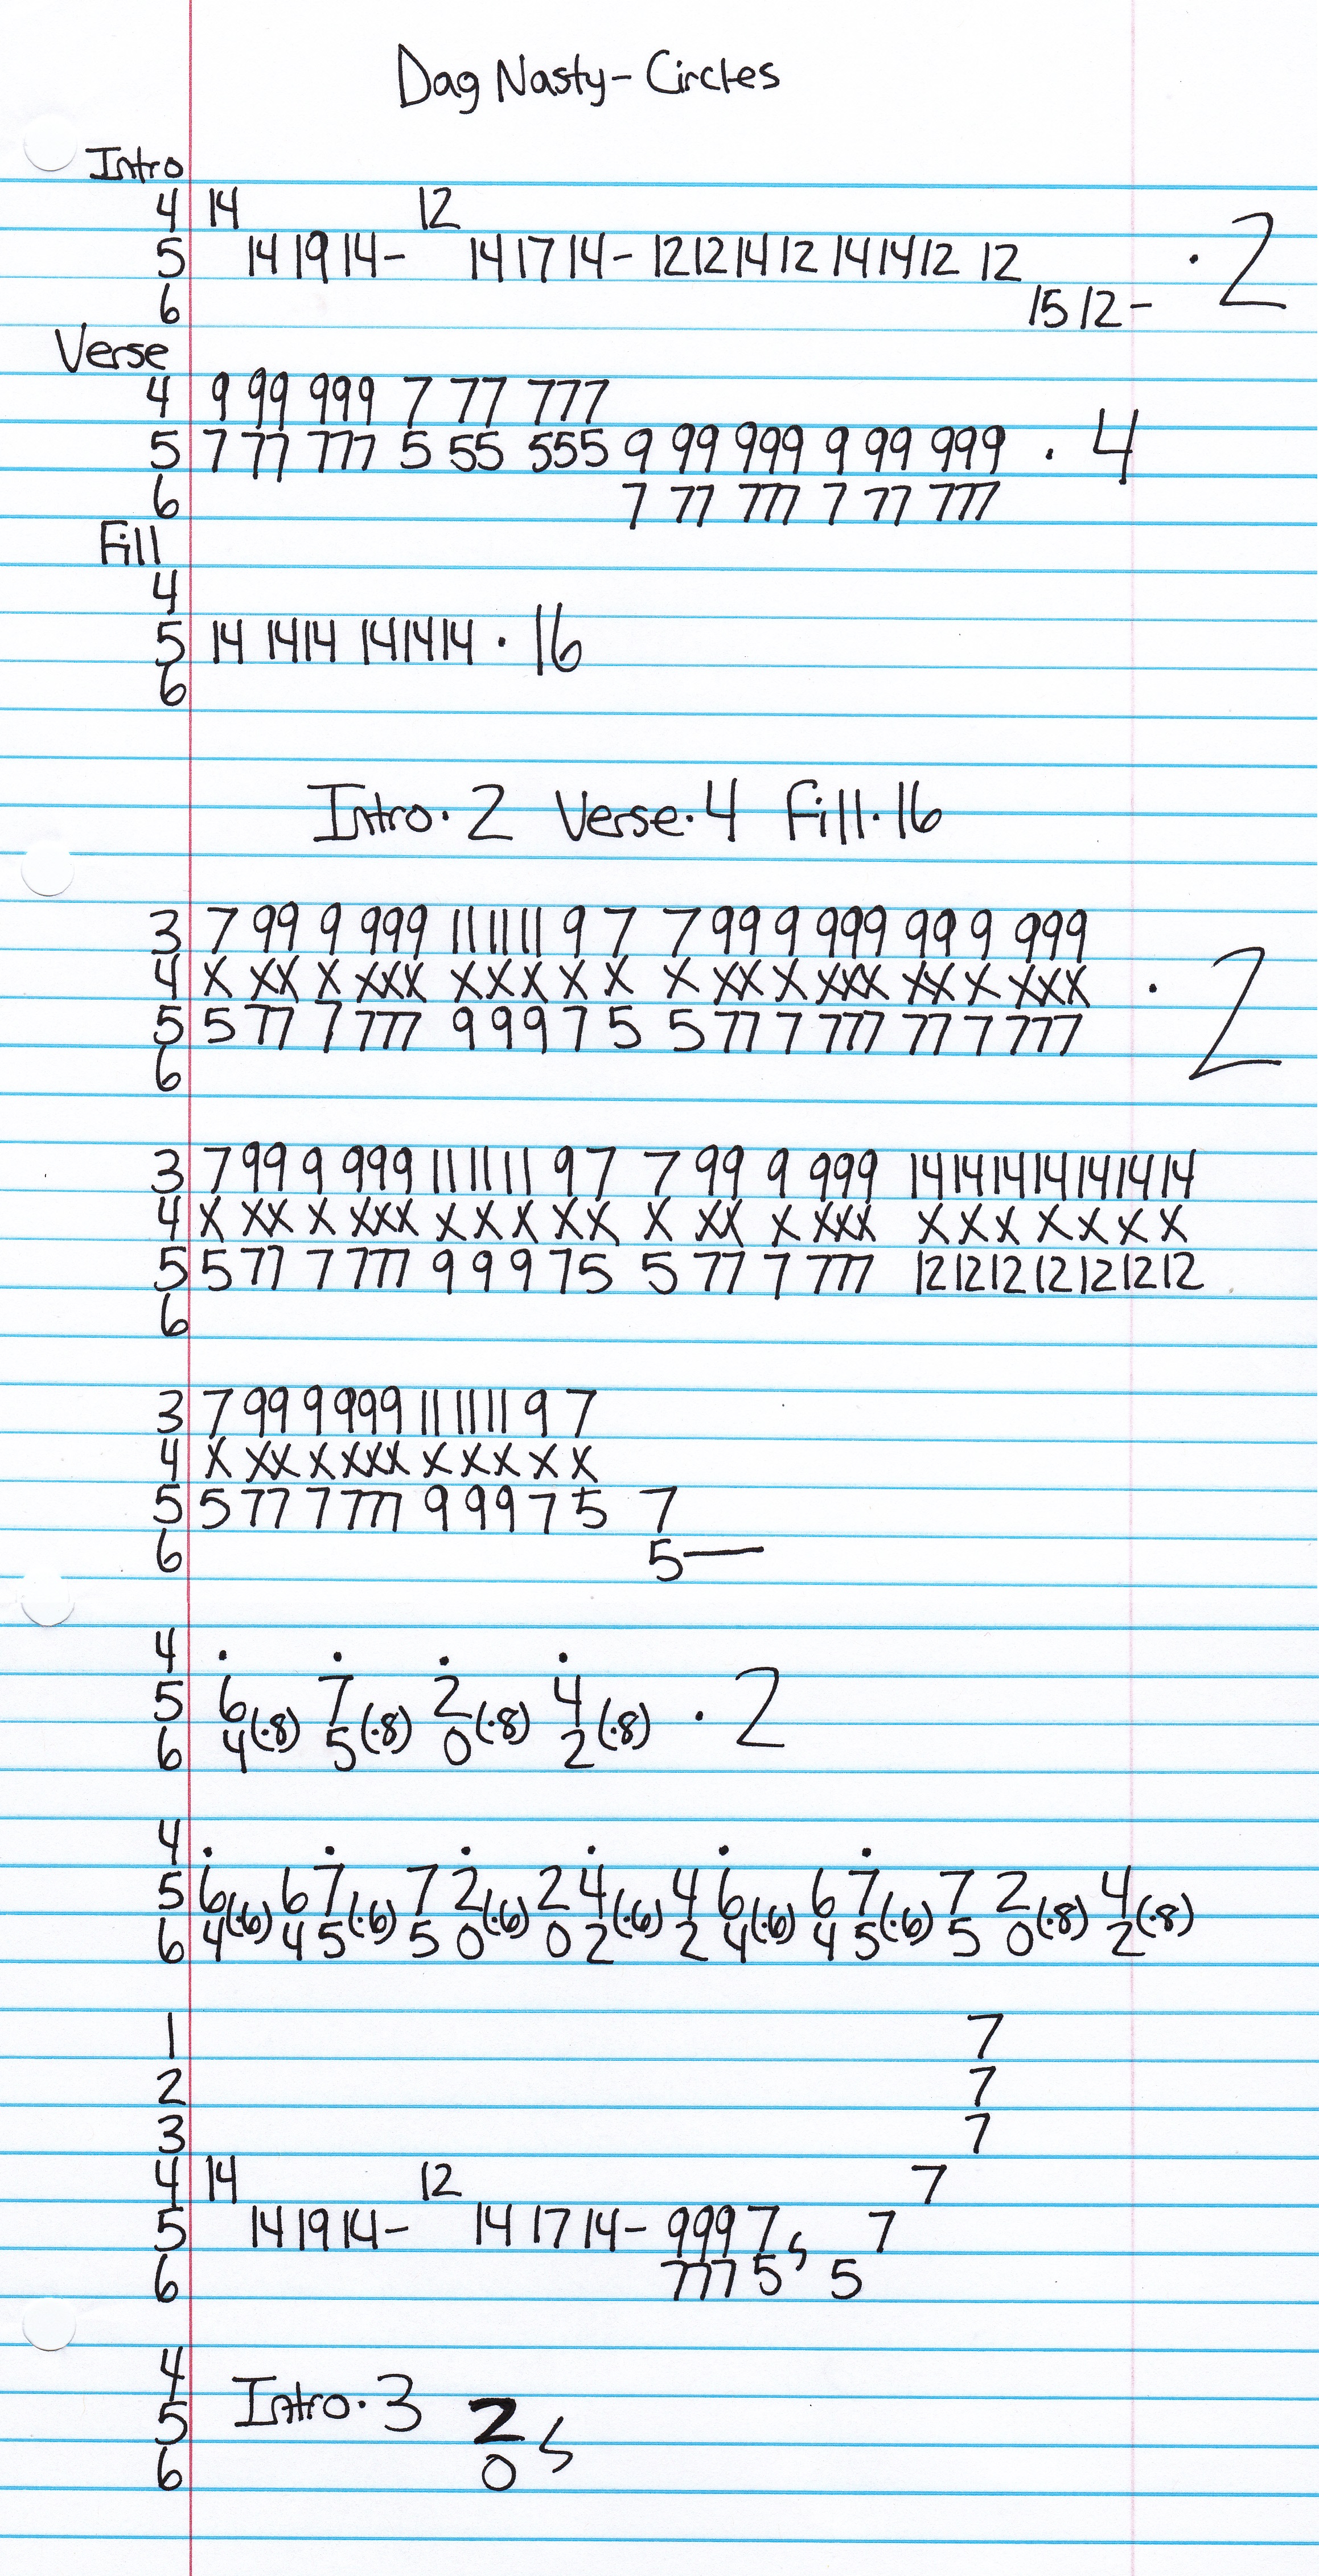 Dag Nasty - Circles
Intro
4 14 12
5 14 19 14 - 14 17 14 - 12 12 14 12 14 14 12 12 · 2
6 15 12 -
Verse
4 9 99 999 7 77 777
5 7 77 777 5 55 555 9 99 999 9 99 999 · 4
6 7 77 777 7 77 777
Fill
4
5 14 1414 141414 · 16
6
Intro · 2 Verse · 4 Fill · 16
3 7 99 9 999 11 11 11 9 7 7 99 9 999 99 9 999
4 X XX X XXX X X X X X X XX X XXX XX X XXX · 2
5 5 77 7 777 9 9 9 7 5 5 77 7 777 77 7 777
6
3 7 99 9 999 11 11 11 9 7 7 99 9 999 14 14 14 14 14 14 14
4 X XX X XXX X X X X X X XX X XXX X X X X X X X
5 5 77 7 777 9 9 9 7 5 5 77 7 777 12 12 12 12 12 12 12
6
3 7 99 9 999 11 11 11 9 7
4 X XX X XXX X X X X X
5 5 77 7 777 9 9 9 7 5 7
6 5 —
4 · · · ·
5 6 7 2 4 · 2
6 4 (·8) 5 (·8) 0 (·8) 2 (·8)
4 · · · · · ·
5 6 (·6) 6 7 (·6) 7 2 (·6) 2 4 (·6) 4 6 (·6) 6 7 (·6) 7 2 (·8) 4 (·8)
6 4 4 5 5 0 0 2 2 4 4 5 5 0 2
1 7
2 7
3 7
4 14 12 7
5 14 19 14 - 14 17 14 - 9 9 9 7 s 7
6 7 7 7 5 5
4
Intro · 3
5 2 s
6 0